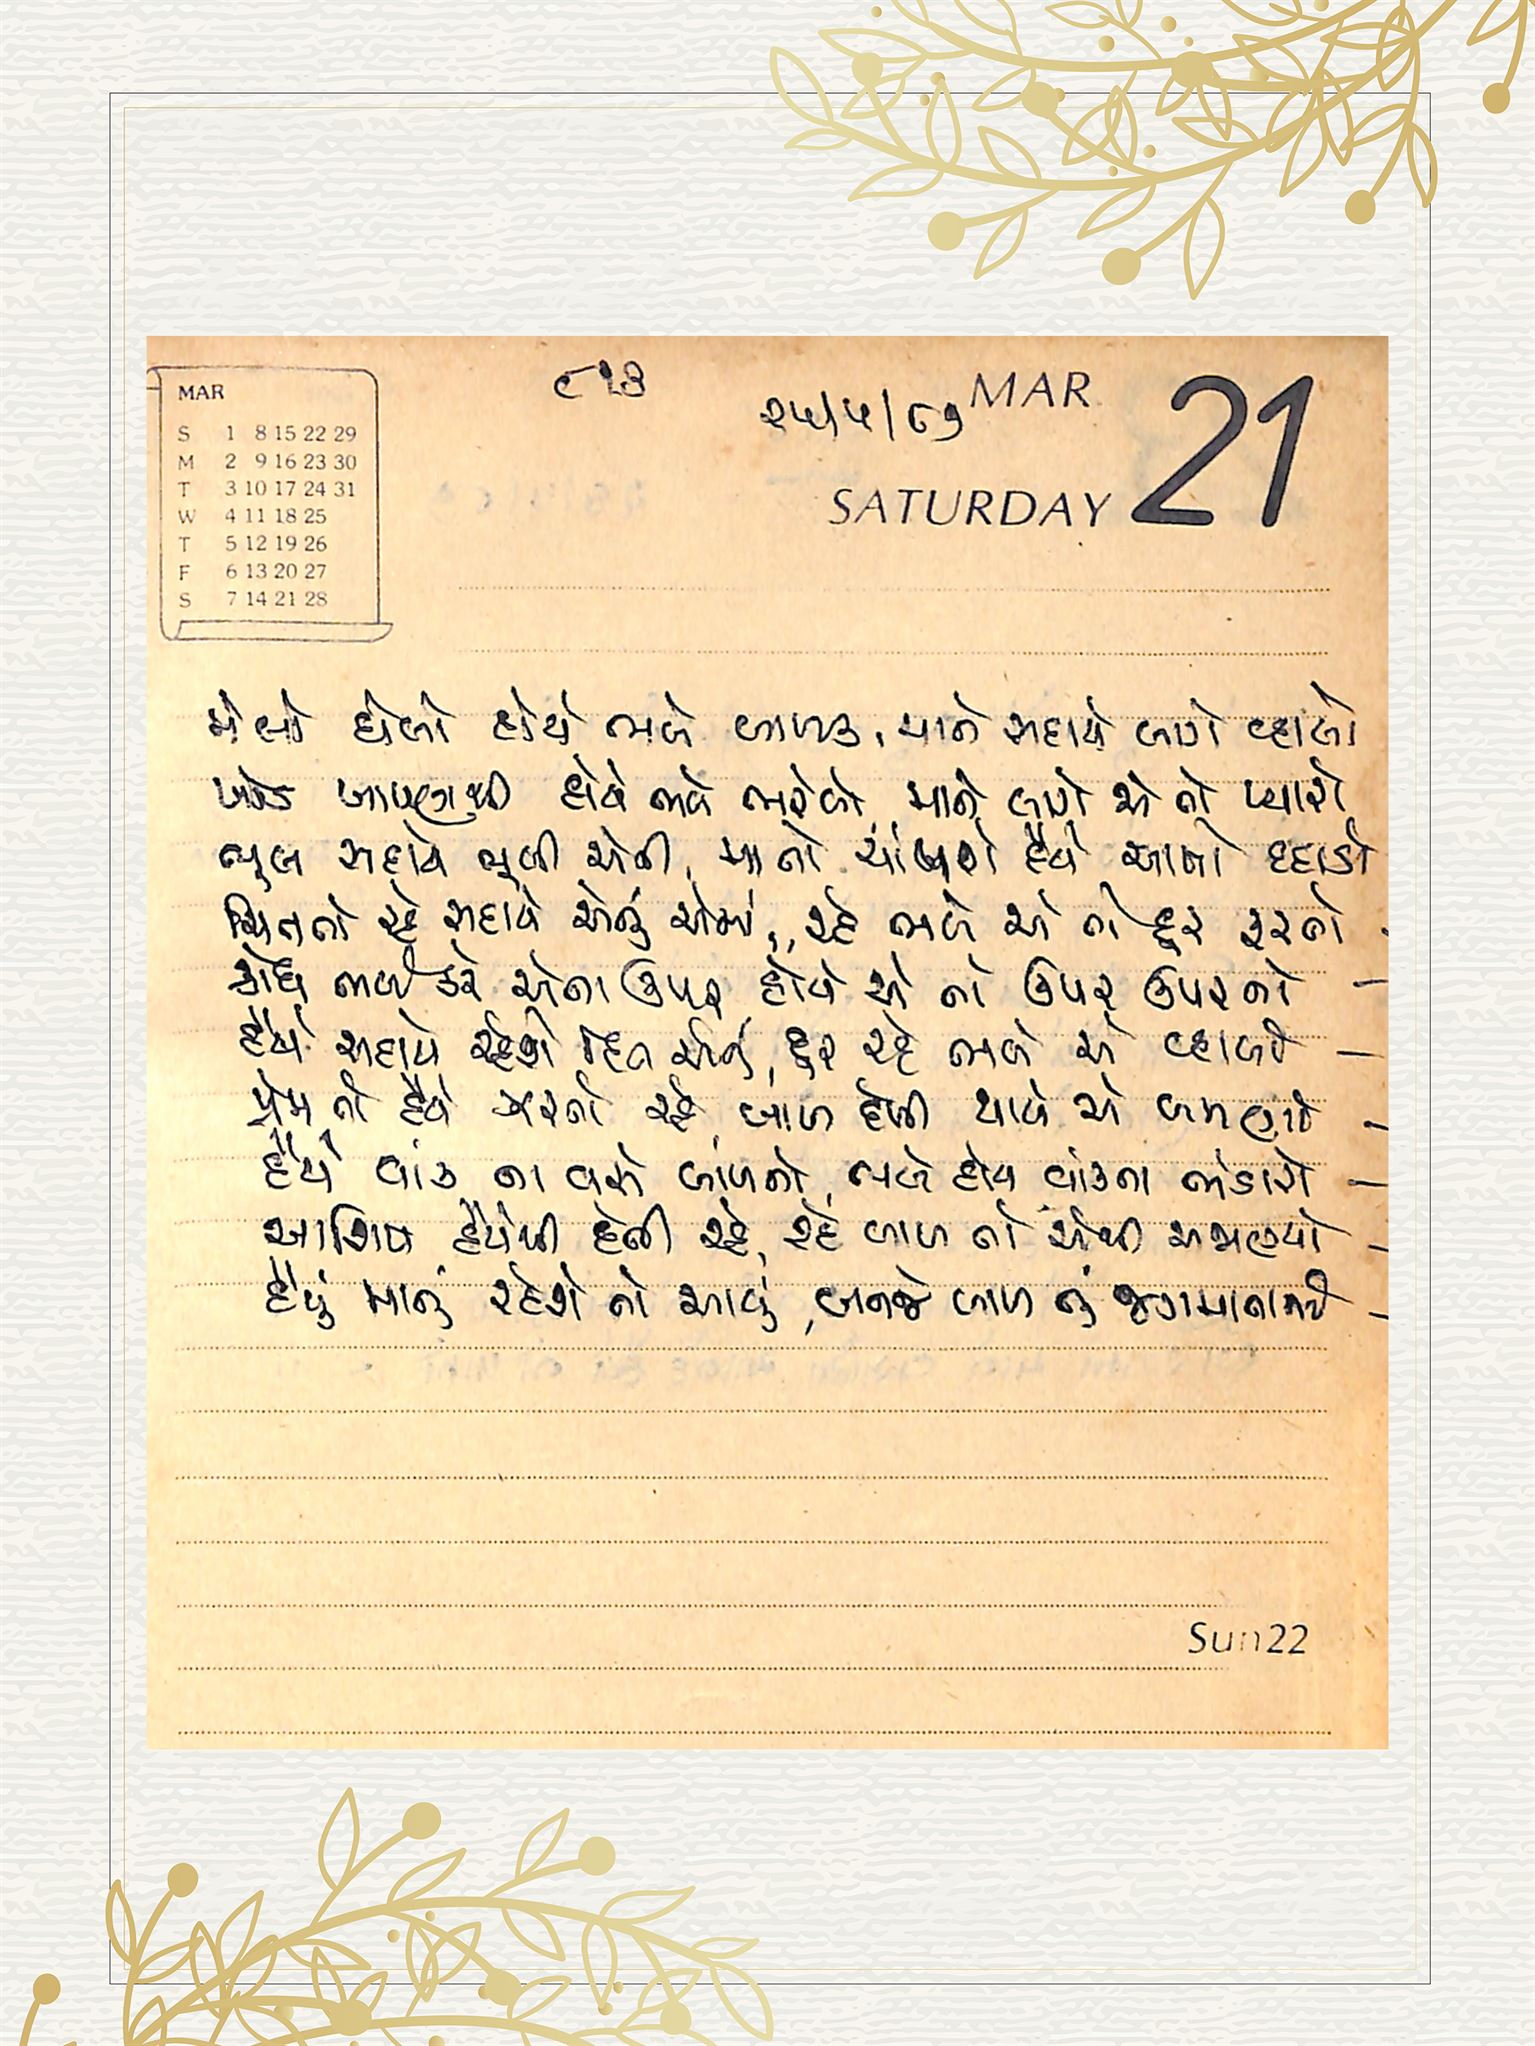 MAR
S 1 8 15 22 29
M 2 9 16 23 30
T 3 10 17 24 31
W 4 11 18 25
T 5 12 19 26
F 6 13 20 27
S 7 14 21 28
૯૧૩
૨૫/૫/૮૭
MAR 21
SATURDAY
મેલો ઘેલો હોયે ભલે બાળક, માને સદાયે લાગે વ્હાલો
ખોડ ખાપણથી હોયે ભલે ભરેલો, માને લાગે એ તો પ્યારો
ભૂલ સદાયે ભૂલી એની, માનો હૈયે આખો દહાડો
ચિત્ત તો રહે સદાયે એનું એમાં, રહે ભલે એ તો દૂર ફરતો -
ક્રોધ ભલે કરે એના ઉપર, હોયે એ તો ઉપર ઉપરનો -
હૈયે સદાયે રહેશે હિત એનું, દૂર રહે ભલે એ વ્હાલો -
પ્રેમ તો હૈયે ઝરતો રહે, બાળ દેખી થાયે એ બમણો -
હૈયે વાંક ના વસે બાળનો, ભલે હોય વાંકના ભંડારો -
આશિષ હૈયેથી દેતી રહે, રહે બાળ તો એથી અજાણ્યો -
હૈયું માનું રહેશે તો આવું, બનજે બાળ તું જગમાતાનો -
Sun 22